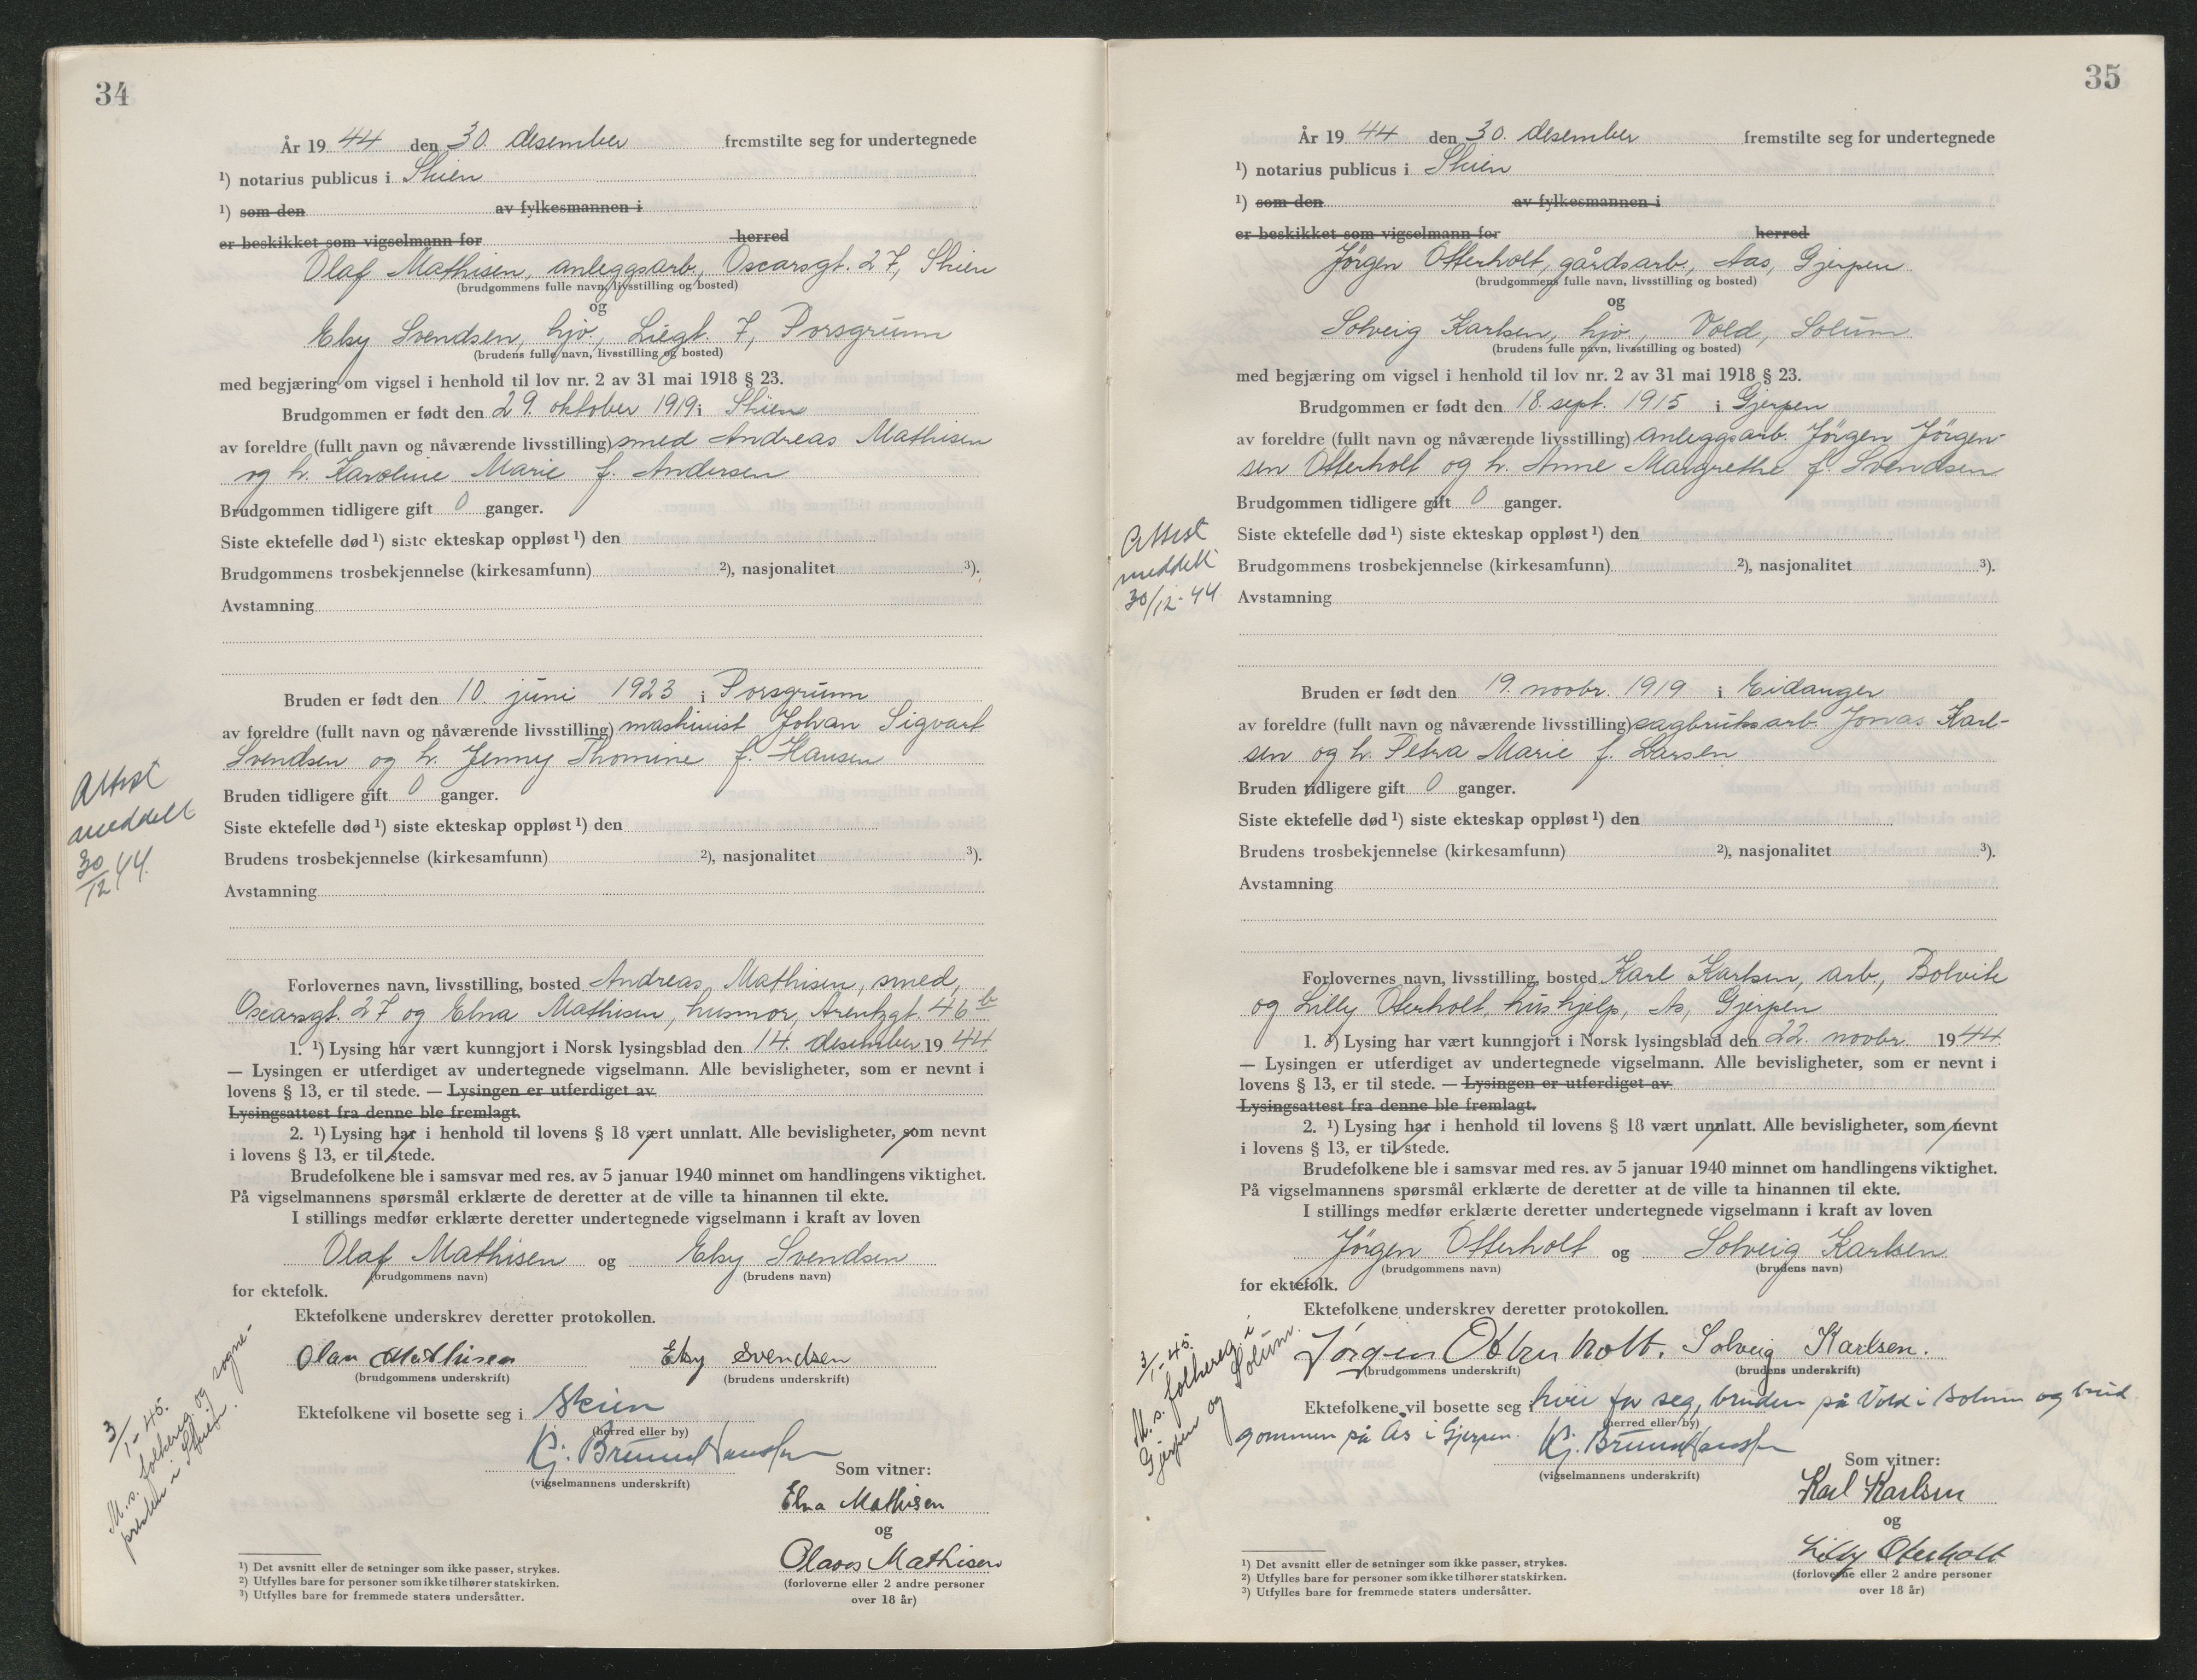 34
År 19 44 den 30. desember fremstilte seg for undertegnede
¹) notarius publicus i Skien
¹) som den av fylkesmannen i
er beskikket som vigselmann for herred
Olaf Mathisen, anleggsarb., Oscarsgt. 27, Skien
(brudgommens fulle navn, livsstilling og bosted)
og
Elsy Svendsen, hjv., Liegt. 7, Porsgrunn
(brudens fulle navn, livsstilling og bosted)
med begjæring om vigsel i henhold til lov nr. 2 av 31 mai 1918 § 23.
Brudgommen er født den 29. oktober 1919 i Skien
av foreldre (fullt navn og nåværende livsstilling) smed Andreas Mathisen
og h. Karoline Marie f. Andersen
Brudgommen tidligere gift 0 ganger.
Siste ektefelle død ¹) siste ekteskap oppløst ¹) den
Brudgommens trosbekjennelse (kirkesamfunn) ²), nasjonalitet ³).
Avstamning
Bruden er født den 10. juni 1923 i Porsgrunn
av foreldre (fullt navn og nåværende livsstilling) maskinist Johan Sigvart
Svendsen og h. Jenny Thomine f. Hansen
Bruden tidligere gift 0 ganger.
Siste ektefelle død ¹) siste ekteskap oppløst ¹) den
Brudens trosbekjennelse (kirkesamfunn) ²), nasjonalitet ³).
Avstamning
Attest
meddelt
30/12 44.
Forlovernes navn, livsstilling, bosted Andreas Mathisen, smed,
Oscarsgt. 27 og Elna Mathisen, husmor, Arentzgt. 46 b
1. ¹) Lysing har vært kunngjort i Norsk lysingsblad den 14. desember 19 44
— Lysingen er utferdiget av undertegnede vigselmann. Alle bevisligheter, som er nevnt i
lovens § 13, er til stede. — Lysingen er utferdiget av
Lysingsattest fra denne ble fremlagt.
2. ¹) Lysing har i henhold til lovens § 18 vært unnlatt. Alle bevisligheter, som nevnt
i lovens § 13, er til stede.
Brudefolkene ble i samsvar med res. av 5 januar 1940 minnet om handlingens viktighet.
På vigselmannens spørsmål erklærte de deretter at de ville ta hinannen til ekte.
I stillings medfør erklærte deretter undertegnede vigselmann i kraft av loven
Olaf Mathisen og Elsy Svendsen
(brudgommens navn) (brudens navn)
for ektefolk.
Ektefolkene underskrev deretter protokollen.
Olav Mathisen Elsy Svendsen
(brudgommens underskrift) (brudens underskrift)
Ektefolkene vil bosette seg i Skien
(herred eller by)
Kj. Bruun Hanssen
(vigselmannens underskrift)
Som vitner:
Elna Mathisen
og
Olaves Mathisen
(forloverne eller 2 andre personer
over 18 år)
3/1-45.
M. s. folkereg. og sogne-
presten i Skien.
¹) Det avsnitt eller de setninger som ikke passer, strykes.
²) Utfylles bare for personer som ikke tilhører statskirken.
³) Utfylles bare for fremmede staters undersåtter.
35
År 19 44 den 30. desember fremstilte seg for undertegnede
¹) notarius publicus i Skien
¹) som den av fylkesmannen i
er beskikket som vigselmann for herred
Jørgen Otterholt, gårdsarb., Aas, Gjerpen
(brudgommens fulle navn, livsstilling og bosted)
og
Solveig Karlsen, hjv., Vold, Solum
(brudens fulle navn, livsstilling og bosted)
med begjæring om vigsel i henhold til lov nr. 2 av 31 mai 1918 § 23.
Brudgommen er født den 18. sept. 1915 i Gjerpen
av foreldre (fullt navn og nåværende livsstilling) anleggsarb. Jørgen Jørgen-
sen Otterholt og h. Anne Margrethe f. Svendsen
Brudgommen tidligere gift 0 ganger.
Siste ektefelle død ¹) siste ekteskap oppløst ¹) den
Brudgommens trosbekjennelse (kirkesamfunn) ²), nasjonalitet ³).
Avstamning
Attest
meddelt
30/12-44
Bruden er født den 19. novbr. 1919 i Eidanger
av foreldre (fullt navn og nåværende livsstilling) sagbruksarb. Jonas Karl-
sen og h. Petra Marie f. Larsen
Bruden tidligere gift 0 ganger.
Siste ektefelle død ¹) siste ekteskap oppløst ¹) den
Brudens trosbekjennelse (kirkesamfunn) ²), nasjonalitet ³).
Avstamning
Forlovernes navn, livsstilling, bosted Karl Karlsen, arb., Bolvik
og Lilly Oterholt, hushjelp, As, Gjerpen
1. ¹) Lysing har vært kunngjort i Norsk lysingsblad den 22. novbr. 19 44
— Lysingen er utferdiget av undertegnede vigselmann. Alle bevisligheter, som er nevnt i
lovens § 13, er til stede. — Lysingen er utferdiget av
Lysingsattest fra denne ble fremlagt.
2. ¹) Lysing har i henhold til lovens § 18 vært unnlatt. Alle bevisligheter, som nevnt
i lovens § 13, er til stede.
Brudefolkene ble i samsvar med res. av 5 januar 1940 minnet om handlingens viktighet.
På vigselmannens spørsmål erklærte de deretter at de ville ta hinannen til ekte.
I stillings medfør erklærte deretter undertegnede vigselmann i kraft av loven
Jørgen Otterholt og Solveig Karlsen
(brudgommens navn) (brudens navn)
for ektefolk.
Ektefolkene underskrev deretter protokollen.
Jørgen Otterholt. Solveig Karlsen.
(brudgommens underskrift) (brudens underskrift)
Ektefolkene vil bosette seg i hver for seg, bruden på Vold i Solum og brud
(herred eller by)
gommen på Ås i Gjerpen. Kj. Bruun Hanssen
(vigselmannens underskrift)
Som vitner:
Karl Karlsen
og
Lilly Oterholt
(forloverne eller 2 andre personer
over 18 år)
3/1-45.
M. s. folkereg. i
Gjerpen og Solum.
¹) Det avsnitt eller de setninger som ikke passer, strykes.
²) Utfylles bare for personer som ikke tilhører statskirken.
³) Utfylles bare for fremmede staters undersåtter.